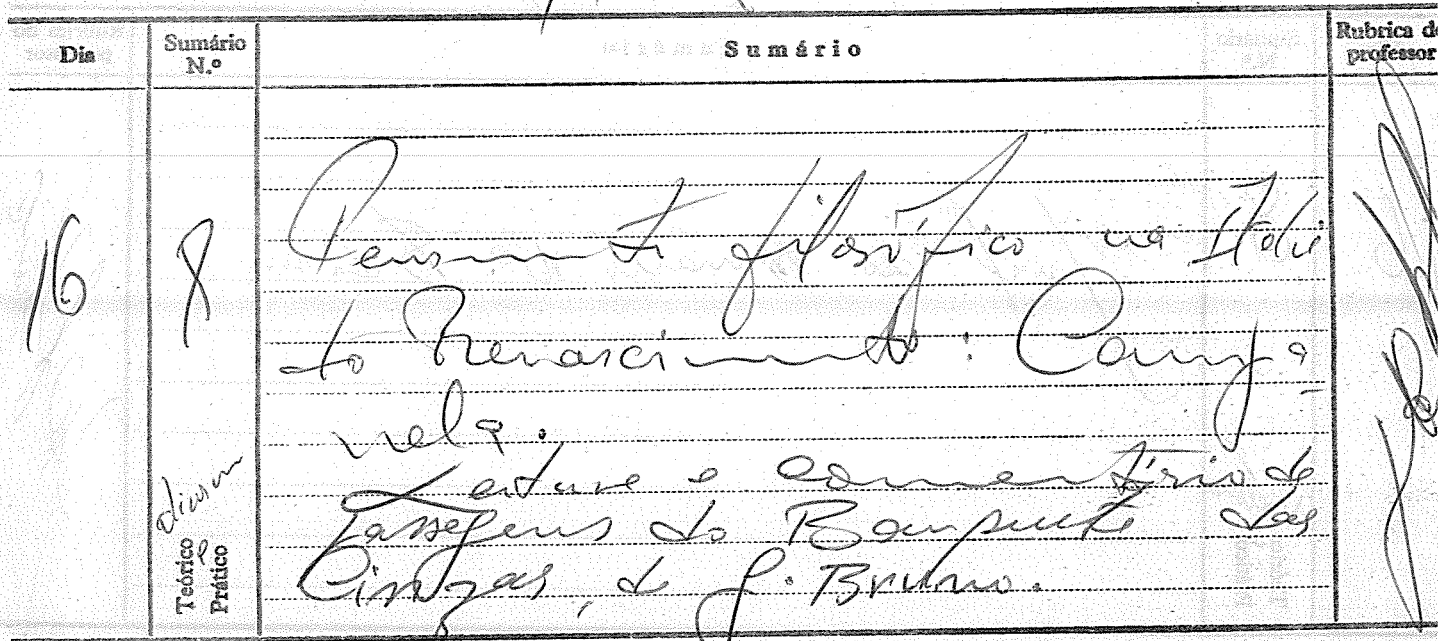 Dia Sumário N.º Sumário Rubrica do professor
16 8 Pensamento filosófico na Itália
do Renascimento: Campa-
nela.
Leitura e comentário de
passagens do Banquete das
Cinzas, de G. Bruno.
Teórico e Prático